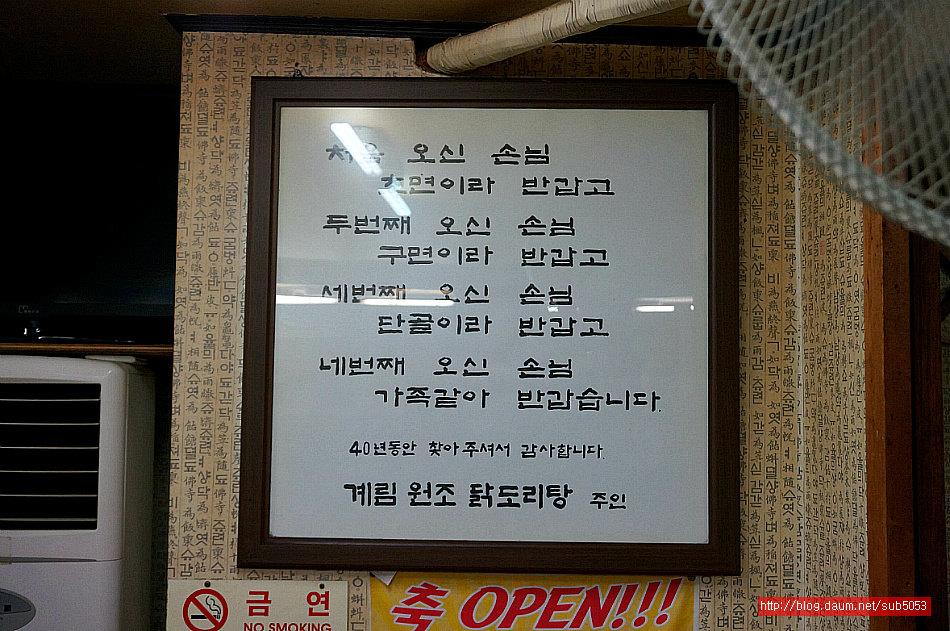 처음 오신 손님
초면이라 반갑고
두번째 오신 손님
구면이라 반갑고
세번째 오신 손님
단골이라 반갑고
네번째 오신 손님
가족같아 반갑습니다.
40년동안 찾아주셔서 감사합니다.
계림 원조 닭도리탕 주인
금 연
NO SMOKING
축 OPEN!!!
http://blog.daum.net/sub5053